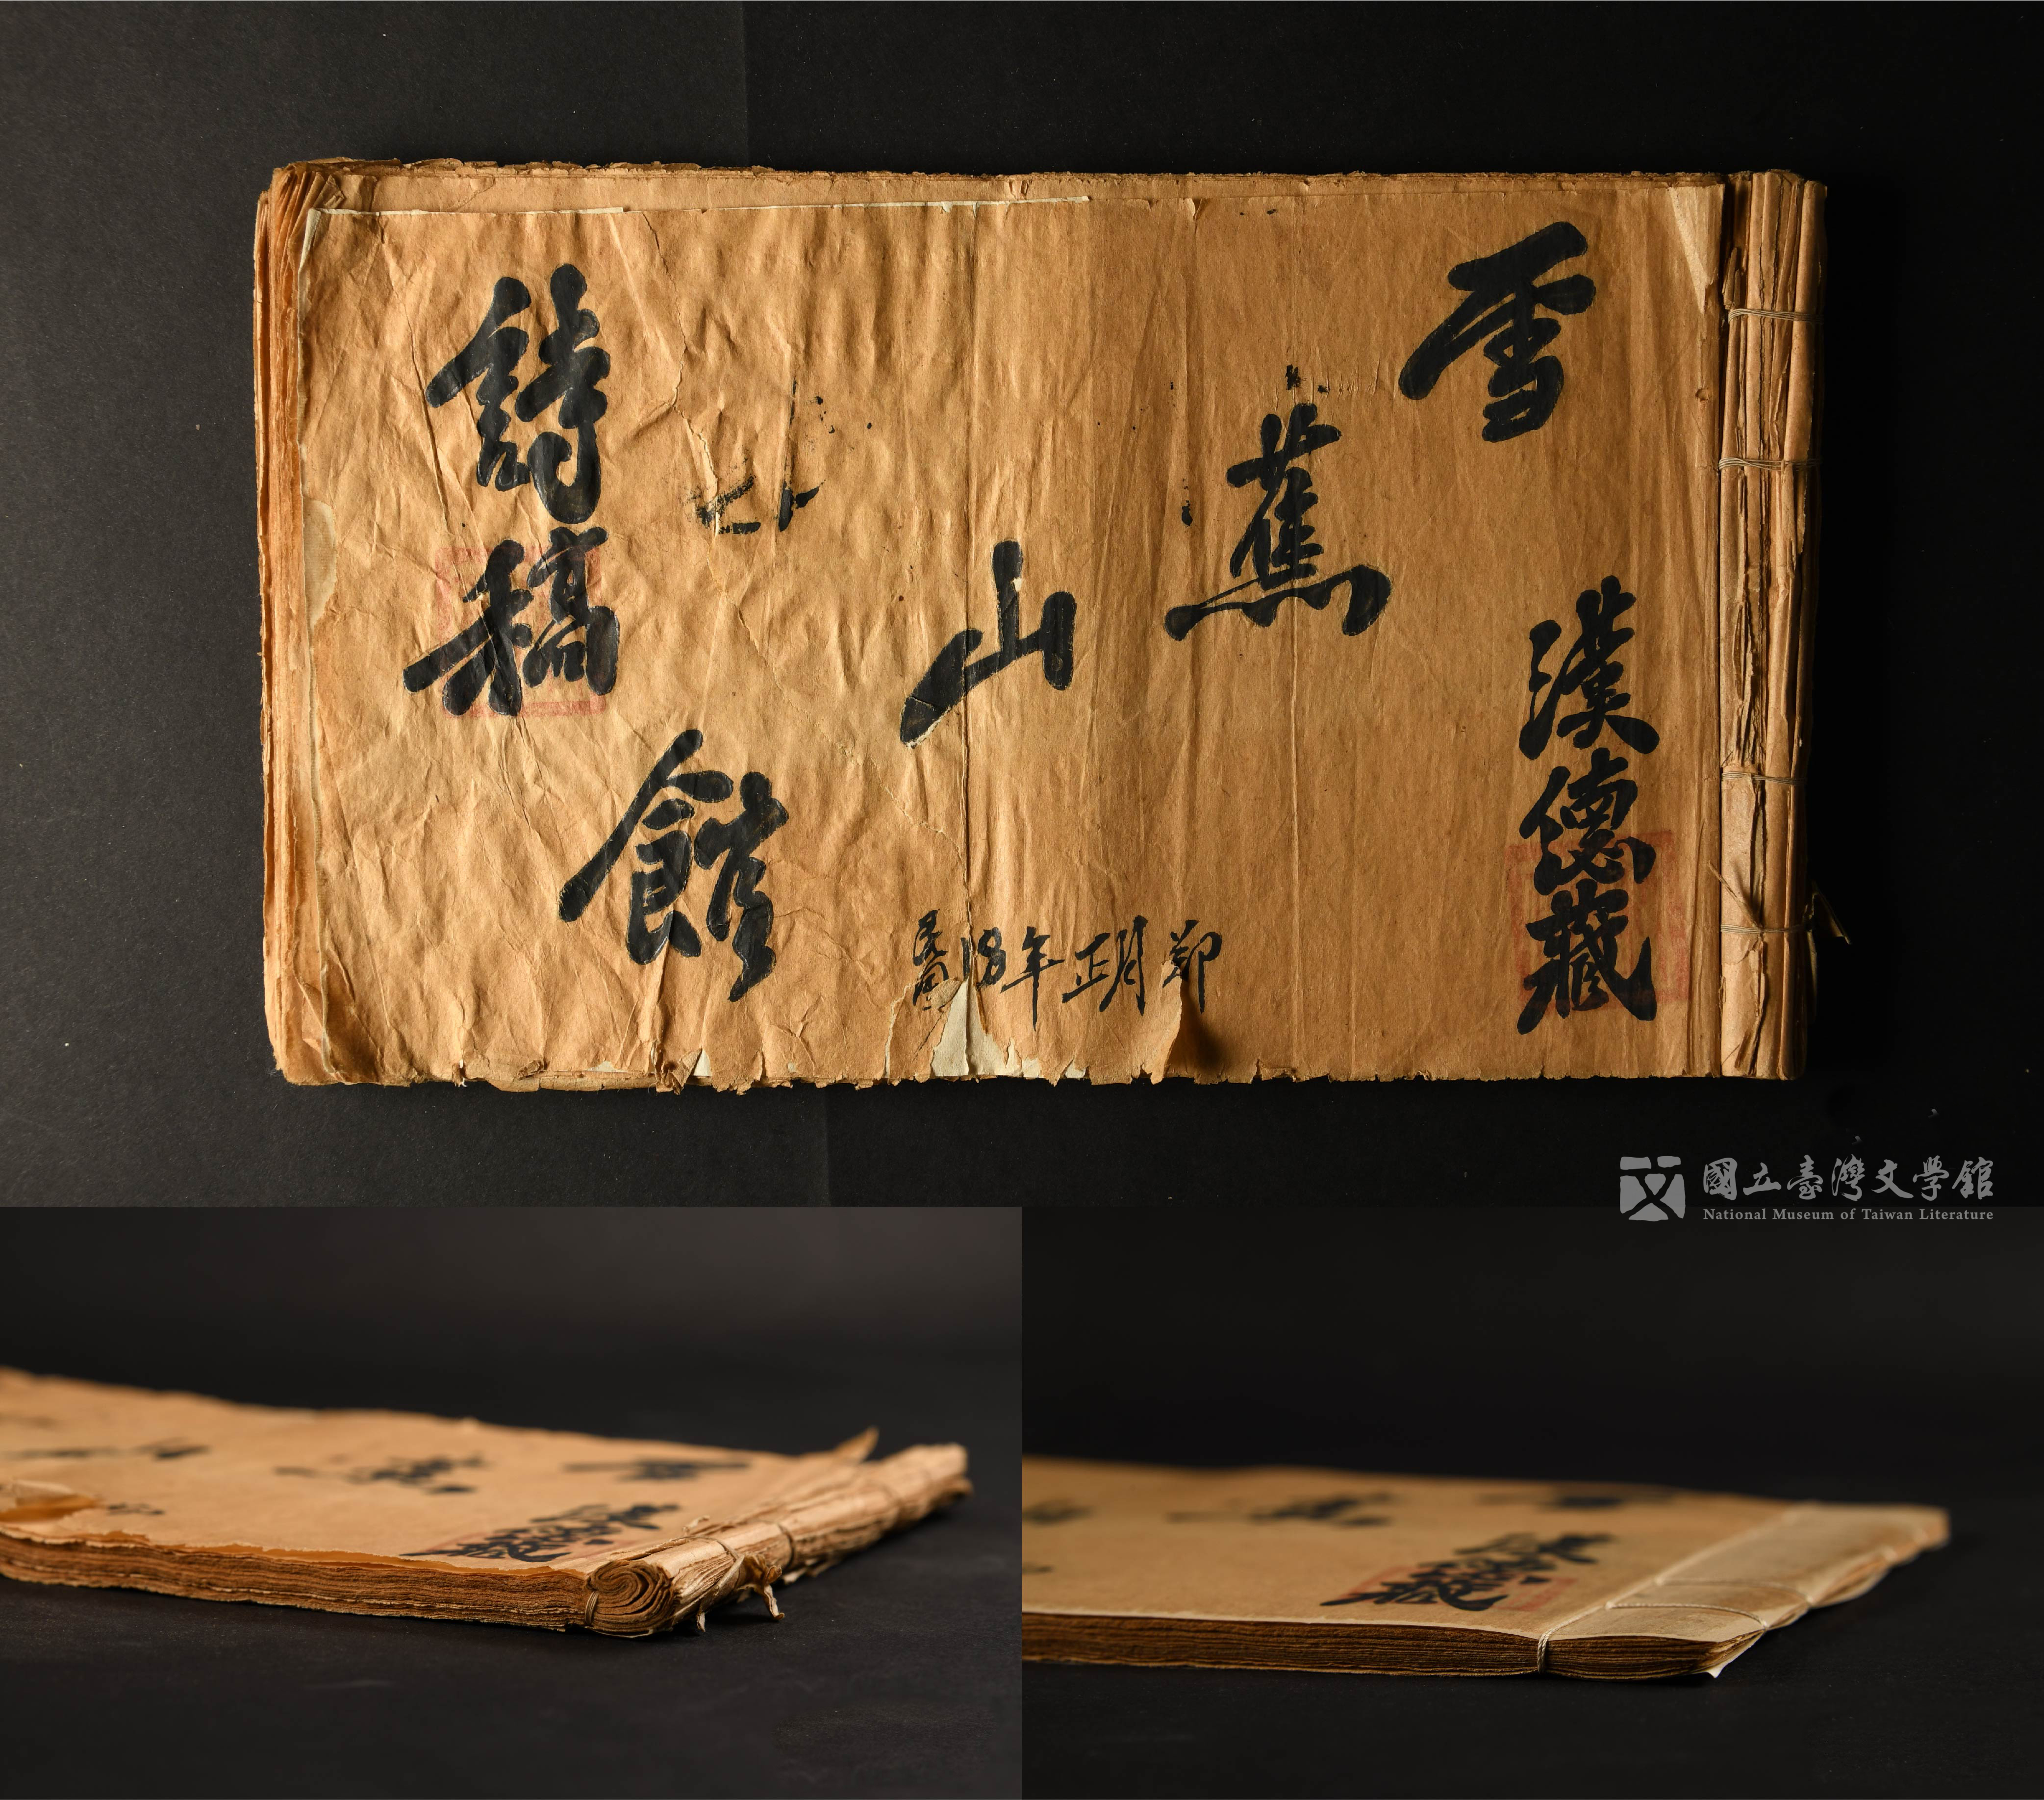 雪蕉山館
詩稿
漢德藏
民國18年正月鄭
國立臺灣文學館
National Museum of Taiwan Literature